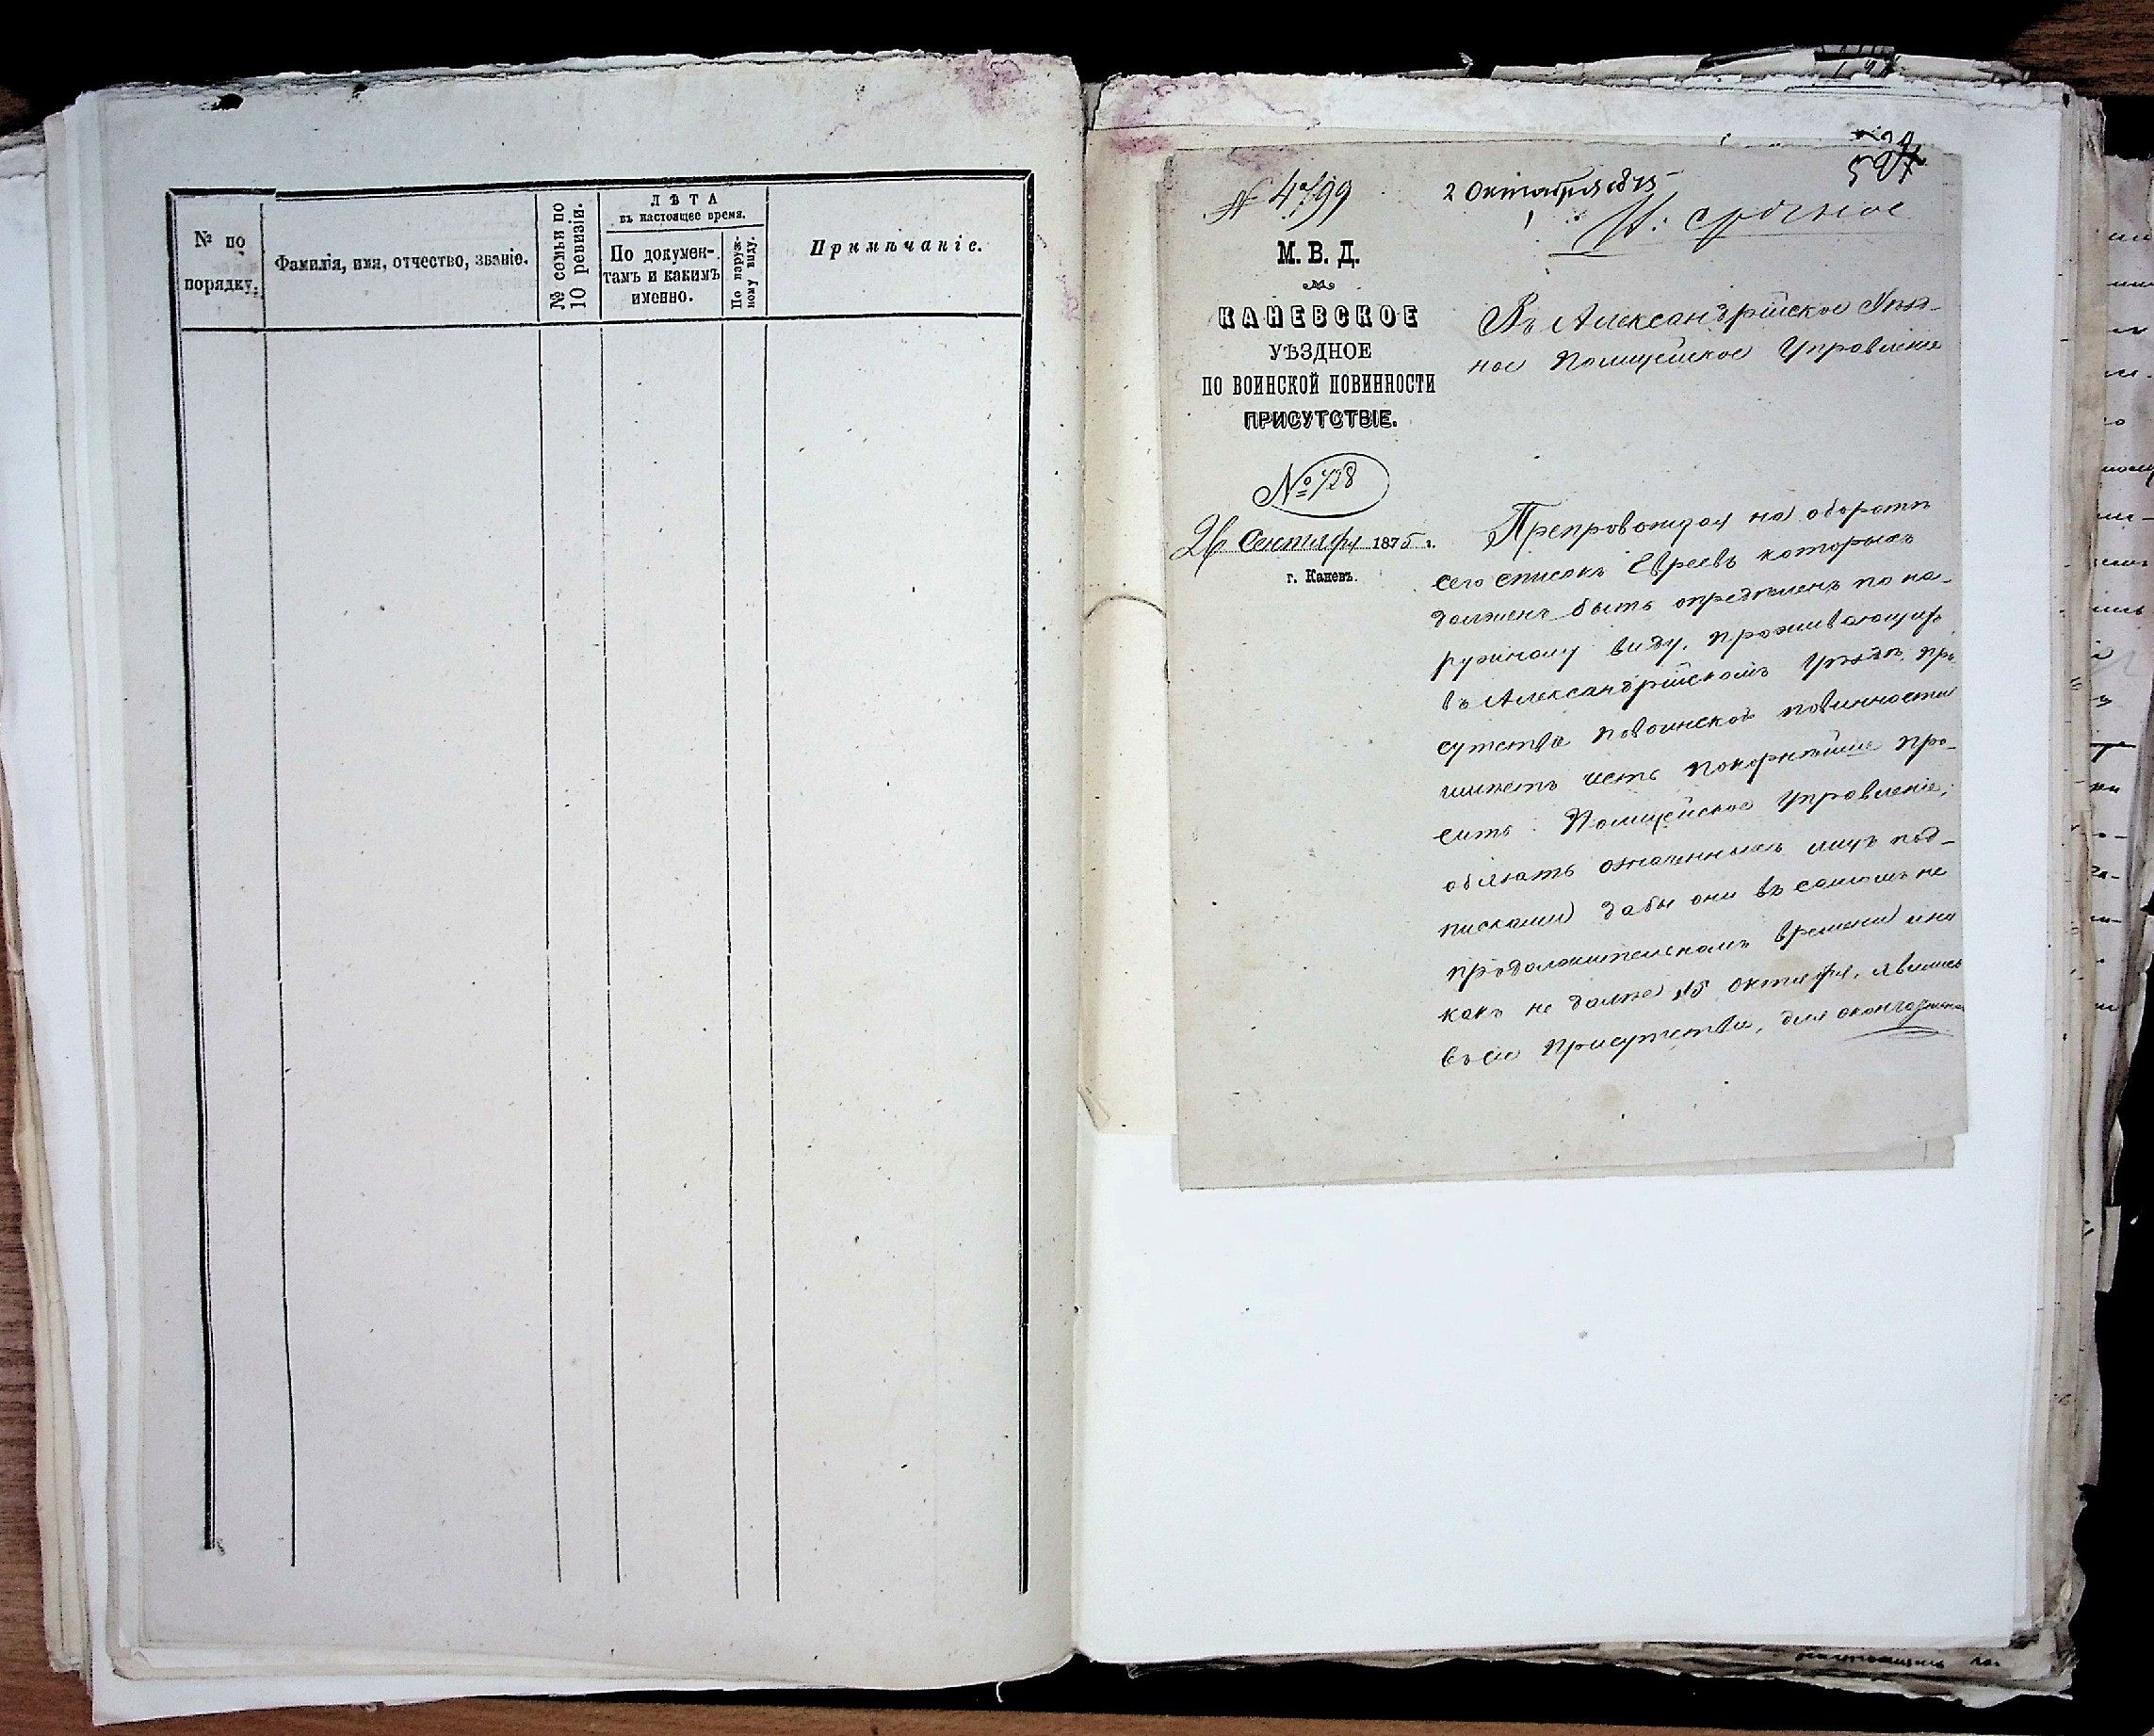 № по порядку.
Фамилія, имя, отчество, званіе.
№ семьи по 10 ревизіи.
ЛѢТА
въ настоящее время.
По докумен-
тамъ и какимъ
именно.
По наруж-
ному виду.
Примѣчаніе.
№ 4799
2 Октября 1875
М. В. Д.
КАНЕВСКОЕ
УѢЗДНОЕ
ПО ВОИНСКОЙ ПОВИННОСТИ
ПРИСУТСТВІЕ.
№ 728
26 Сентября 1875 г.
г. Каневъ.
срочное
Въ Александрійское Уѣзд-
ное Полицейское Управленіе
Препровождая на оборотѣ
сего списокъ Евреевъ которыхъ
долженъ быть опредѣленъ по на-
ружному виду, проживающихъ
въ Александрійскомъ Уѣздѣ, При
сутствіе по воинской повинности
имѣетъ честь покорнѣйше про-
сить Полицейское Управленіе,
обязать означенныхъ лицъ под-
писками дабы они въ самомъ не
продолжительномъ времени и ни
какъ не далѣе 15 Октября, явились
въ сіе Присутствіе, для